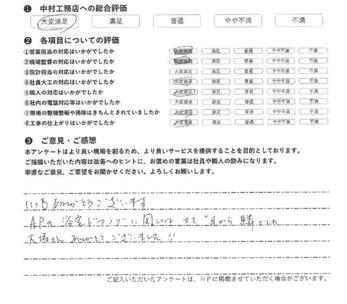 ❶ 中村工務店への総合評価
大変満足 満足 普通 やや不満 不満
❷ 各項目についての評価
①営業担当の対応はいかがでしたか 大変満足 満足 普通 やや不満 不満
②現場監督の対応はいかがでしたか 大変満足 満足 普通 やや不満 不満
③設計担当の対応はいかがでしたか 大変満足 満足 普通 やや不満 不満
④社員大工の対応はいかがでしたか 大変満足 満足 普通 やや不満 不満
⑤職人の対応はいかがでしたか 大変満足 満足 普通 やや不満 不満
⑥社内の電話対応等はいかがでしたか 大変満足 満足 普通 やや不満 不満
⑦現場の整理整頓や掃除はきちんとされていましたか 大変満足 満足 普通 やや不満 不満
⑧工事の仕上がりはいかがでしたか 大変満足 満足 普通 やや不満 不満
❸ ご意見・ご感想
本アンケートはより良い現場を創るため、より良いサービスを提供することを目的としております。
ご指摘いただいた内容は改善へのヒントに、お褒めの言葉は社員や職人の励みになります。
率直なご意見、ご要望をお聞かせください。よろしくお願いします。
いつもありがとうございます
APの浴室ドアノブに関しては
大変 ありがとうございました!!
ご記入いただいたアンケートは、HPに掲載させていただく場合がございます。